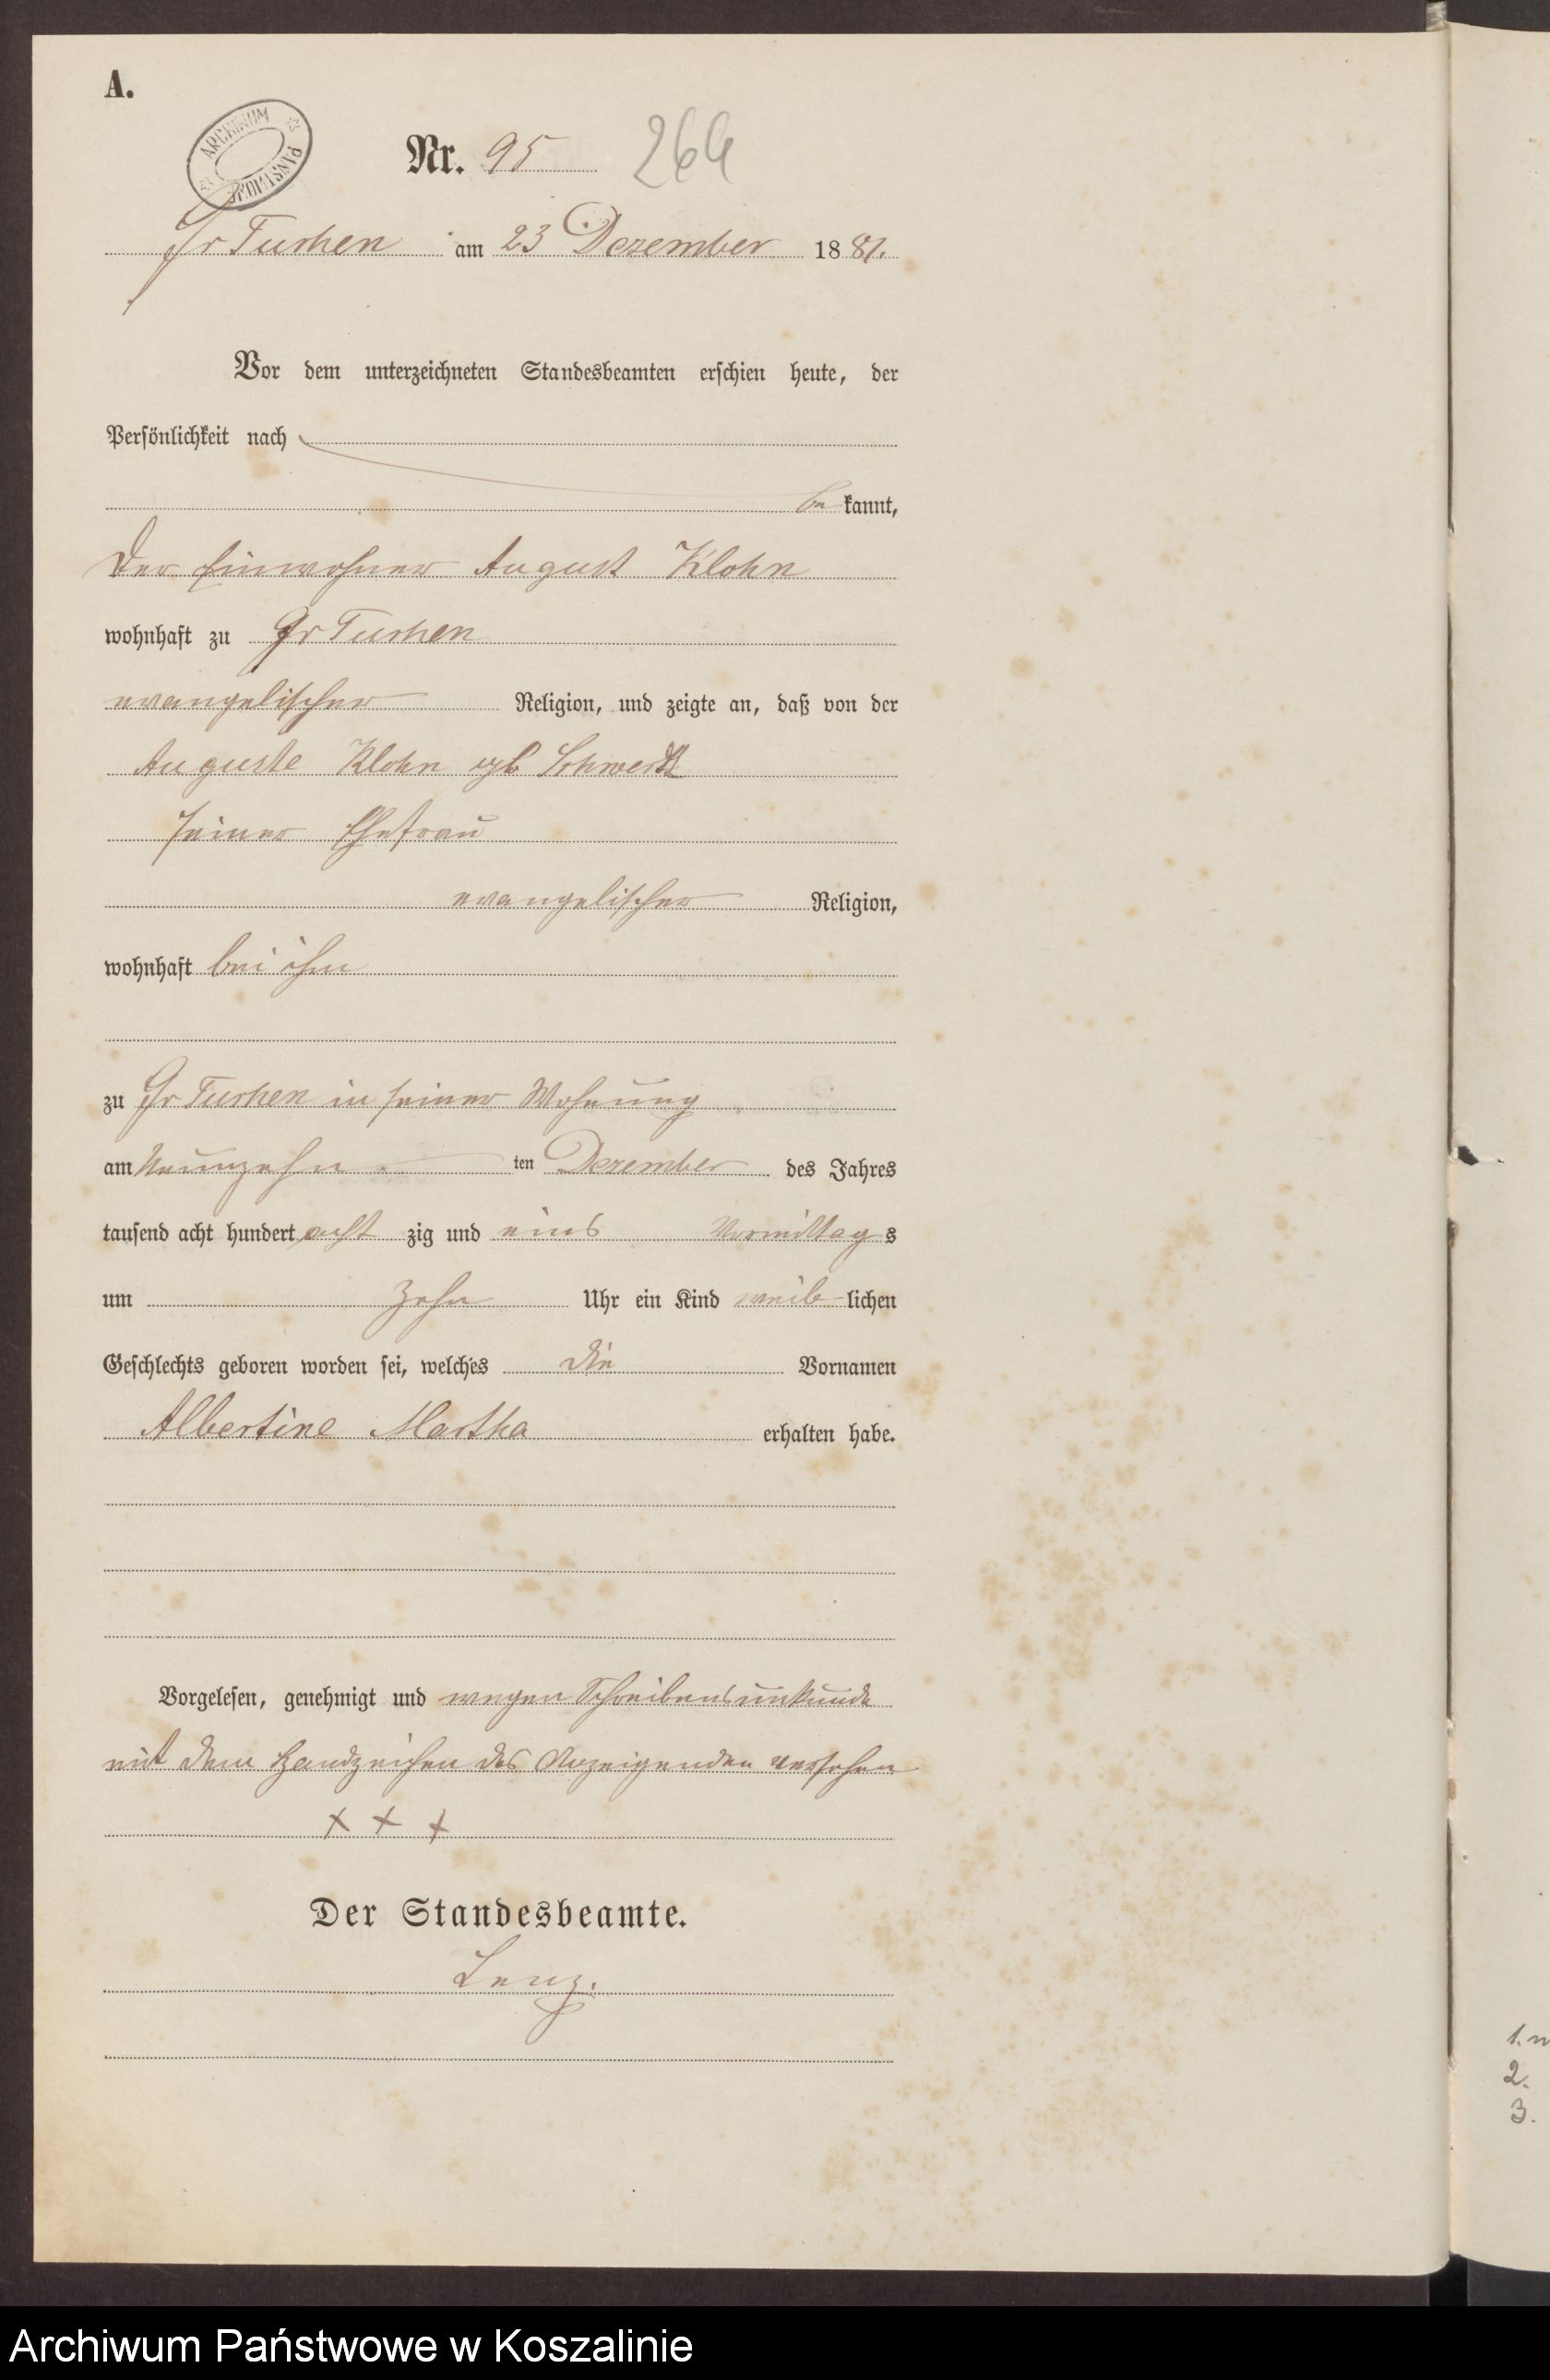 A.
ARCHIWUM PAŃSTWOWE
Nr. 95 264
Gr Tuchen am 23 Dezember 1881.
Vor dem unterzeichneten Standesbeamten erschien heute, der
Persönlichkeit nach
be kannt,
der Einwohner August Klohn
wohnhaft zu Gr Tuchen
evangelischer Religion, und zeigte an, daß von der
Auguste Klohn geb Schwerdt
seiner Ehefrau
evangelischer Religion,
wohnhaft bei ihm
zu Gr Tuchen in seiner Wohnung
am Neunzehn ten Dezember des Jahres
tausend acht hundert acht zig und eins Vormittag s
um Zehn Uhr ein Kind weib lichen
Geschlechts geboren worden sei, welches die Vornamen
Albertine Martha erhalten habe.
Vorgelesen, genehmigt und wegen Schreibensunkunde
mit dem Handzeichen des Anzeigenden versehen
+ + +
Der Standesbeamte.
Lenz.
1.
2.
3.
Archiwum Państwowe w Koszalinie